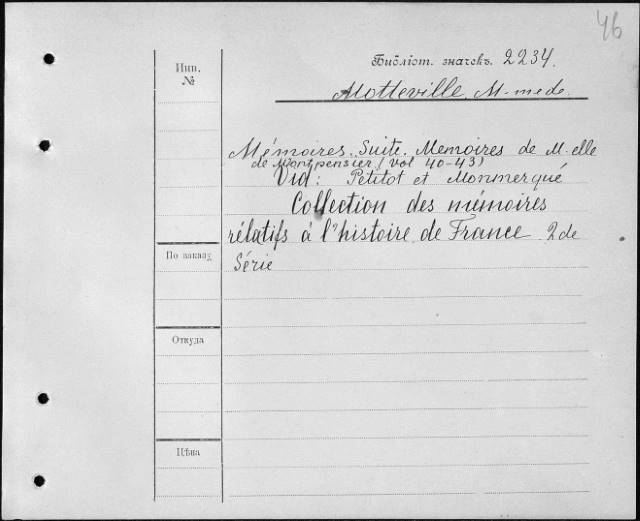 46
Библіот. значекъ 2234.
Инв.
№
Motteville M-me de.
Mémoires. Suite. Memoires de M-elle
de Montpensier (vol 40-43)
Vid: Petitot et Monmerqué
Collection des mémoires
rélatifs à l'histoire de France 2de
Série
По заказу
Откуда
Цѣна